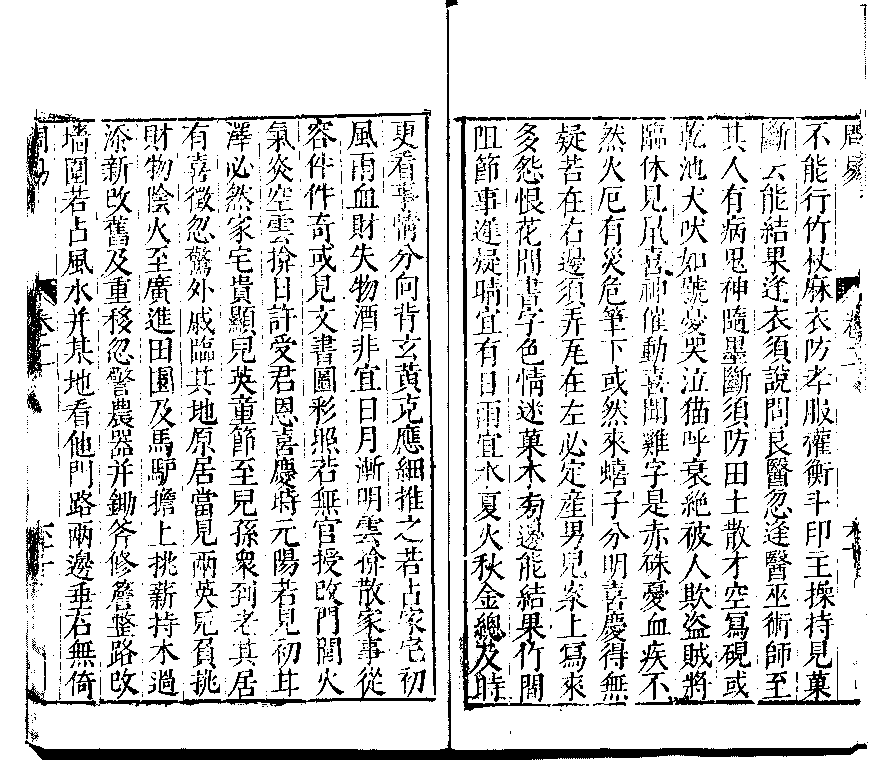 不能行竹杖麻衣防孝服權衡斗印主操持見菓
斷云能結果逢衣須說問良醫忽逢醫巫術師至
其人有病鬼神隨墨斷須防田土散才空寫硯或
乾池犬吠如號憂哭泣猫呼衰絶被人欺盗賊將
臨休見鼠喜神催動喜聞雞字是赤硃憂血疾不
然火厄有災危筆下或然來蟢子分明喜慶得無
疑若在右邊須弄瓦在左必定産男兒案上寫來
多怨恨花間書字色情迷菓木旁邊能結果竹間
阻節事遲疑晴宜有日雨宜水夏火秋金總及時
更看事情分向背玄黃克應細推之若占家宅初
風雨血財失物酒非宜日月漸明雲掩散家事從
容件件奇或見文書圖彩照若無官授改門閭火
氣炎空雲掩日許受君恩喜慶時元陽若見初耳
澤必然家宅貴顯兒英童節至兒孫衆到老其居
有喜徵忽驚外戚臨其地原居當見兩英兒負挑
財物陰火至廣進田園及馬馿擔上挑薪持木過
添新改舊及重移忽警農器并鋤斧修詹整路改
墻圍若占風水并某地看他門路兩邊垂右無倚
卷二
卷二